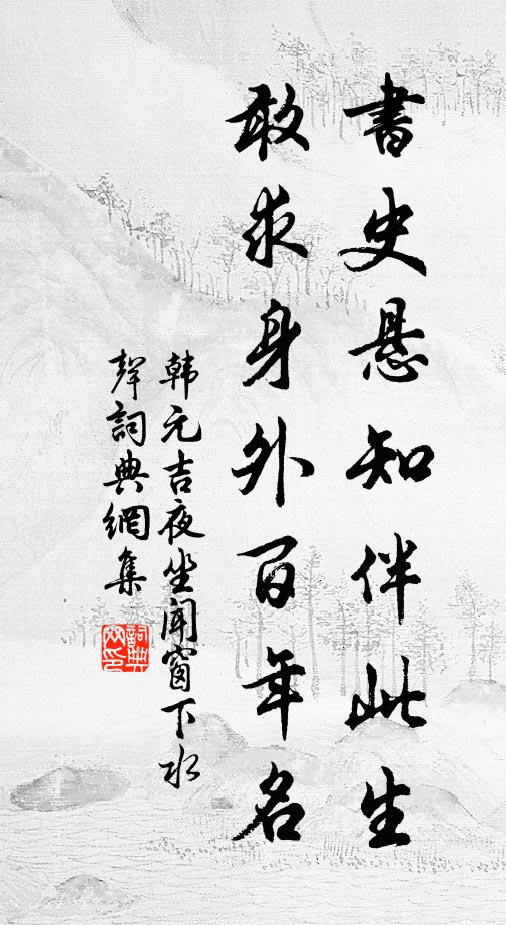 書史悬知伴此生
敢求身外百年名
韩元吉夜坐闻窗下水
聲詞典網集
詞典
网印